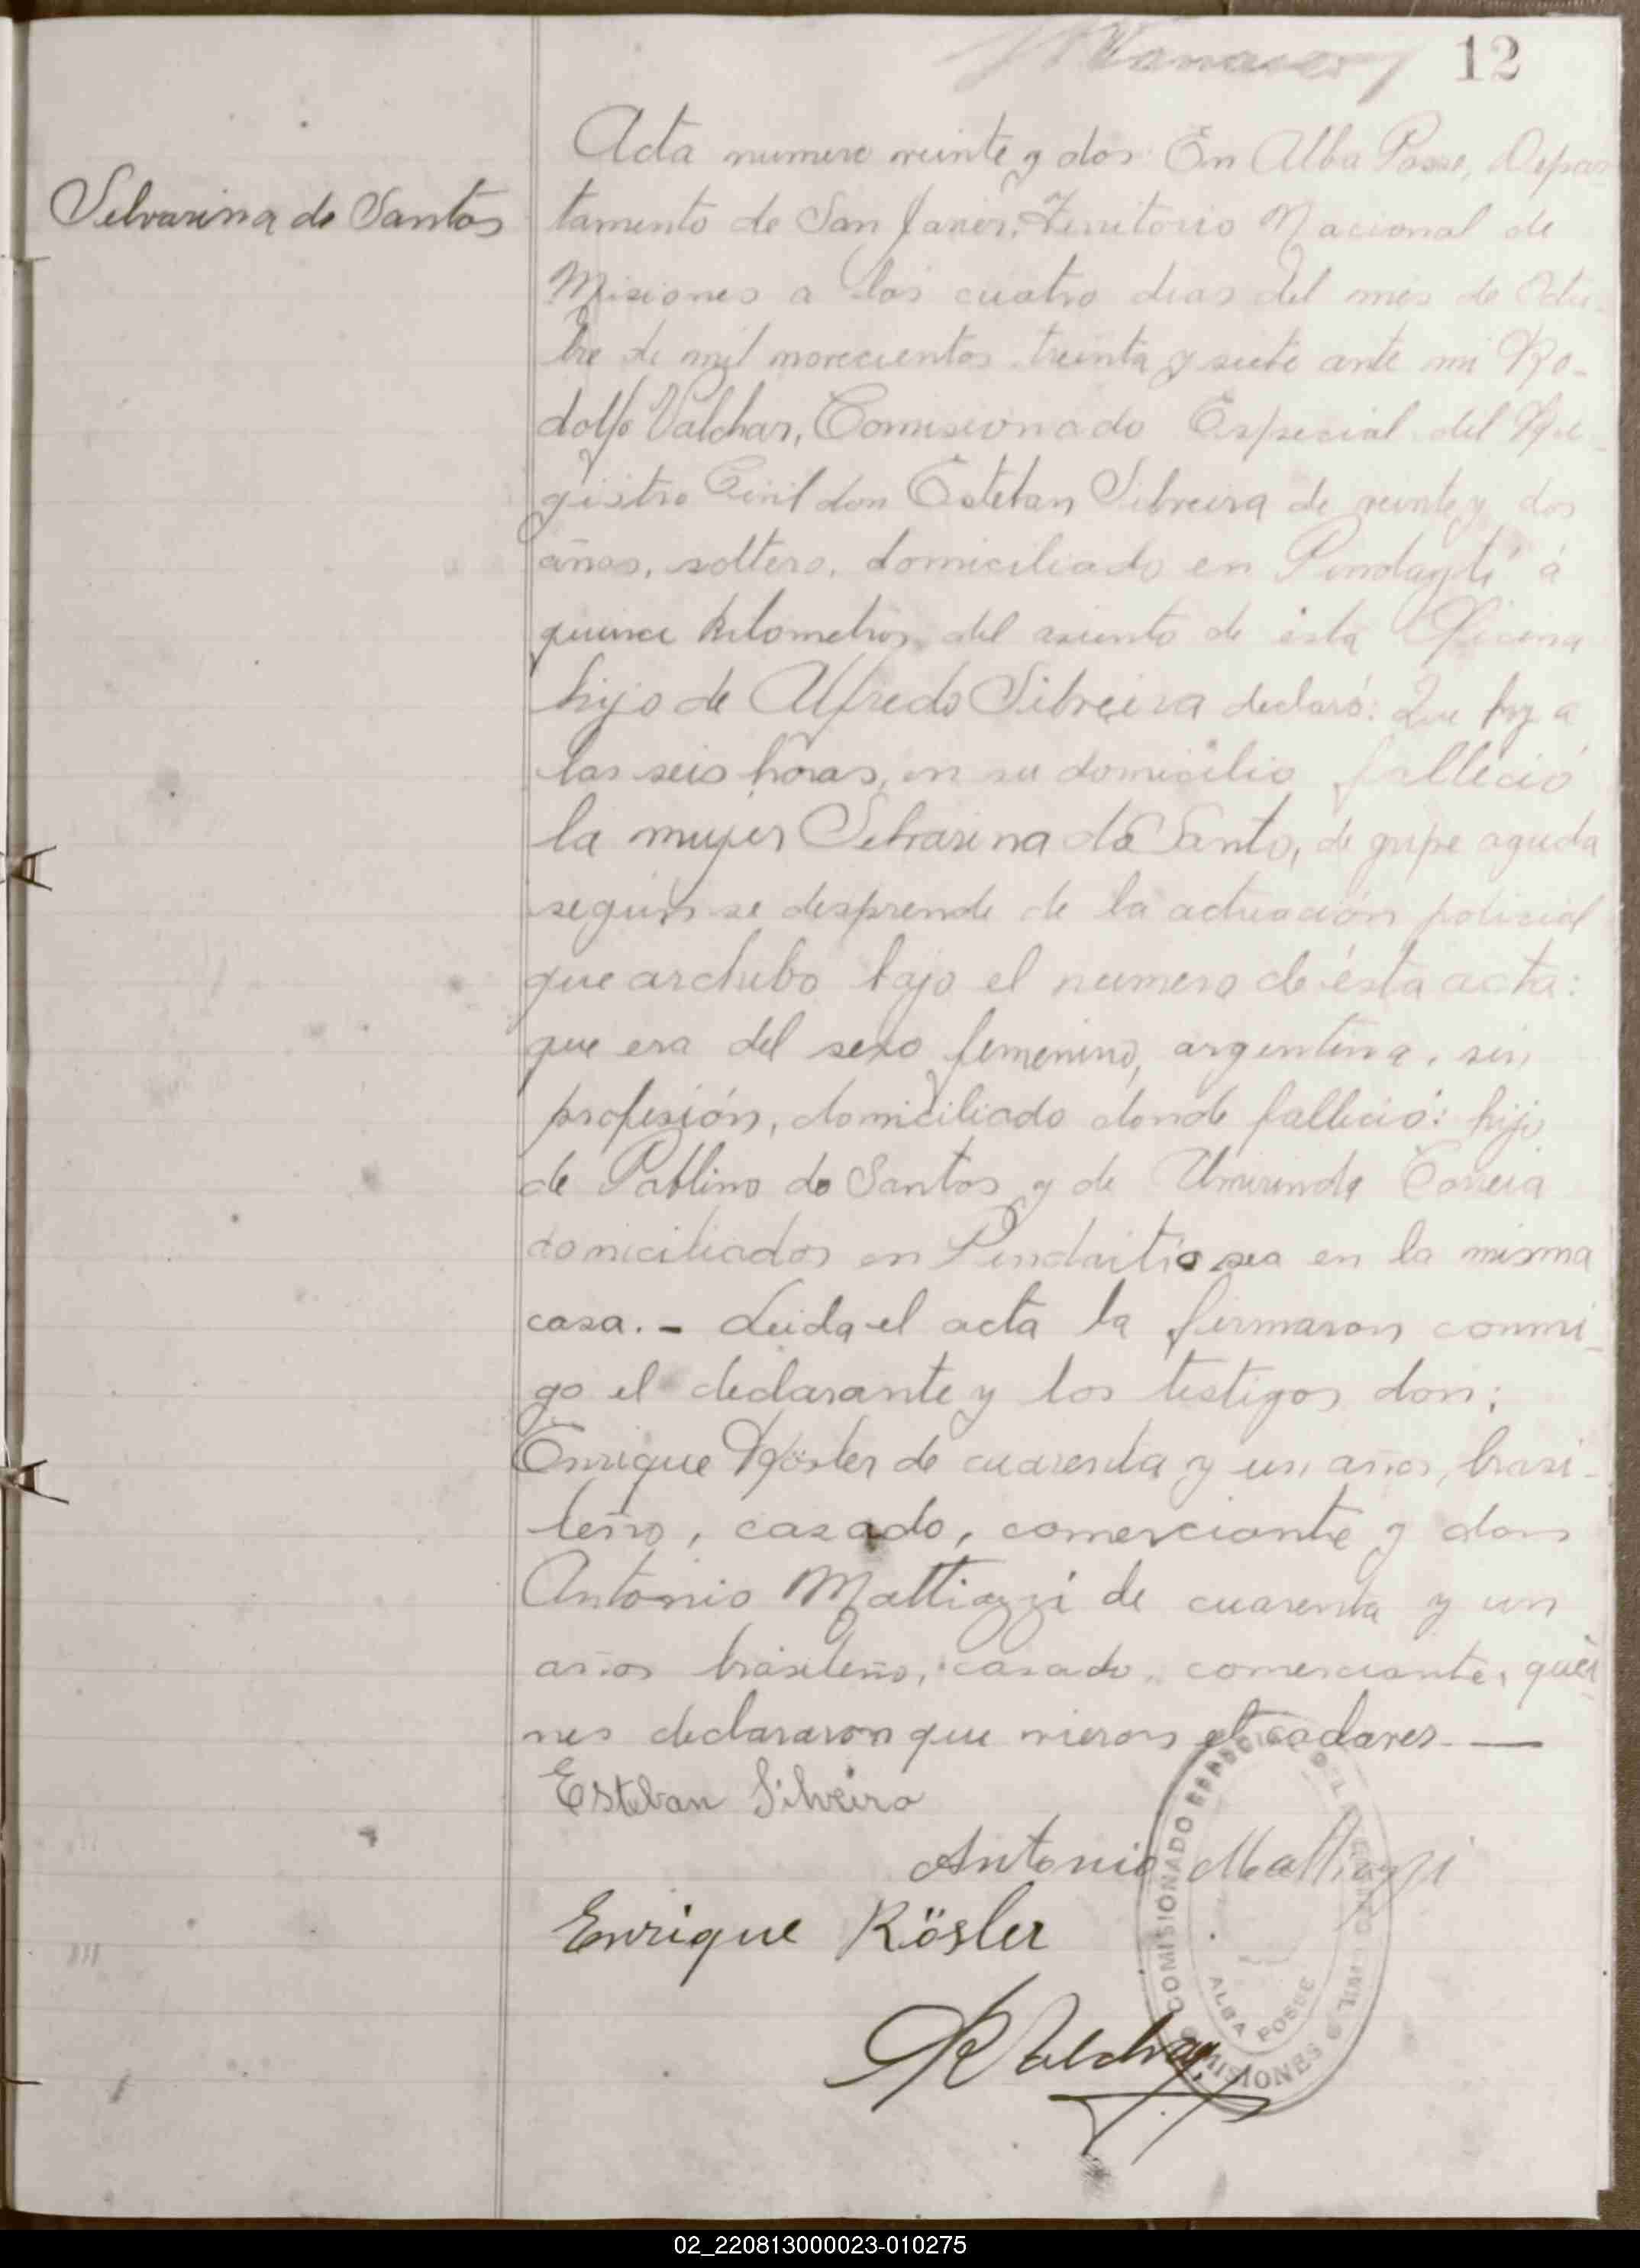 12
Selvarina de Santos
Acta numero veinte y dos En Alba Posse, Depar-
tamento de San Javier, Territorio Nacional de
Misiones a los cuatro dias del mes de Octu-
bre de mil novecientos treinta y siete ante mi Ro-
dolfo Valchar, Comisionado Especial del Re-
gistro Civil don Esteban Silveira de veinte y dos
años, soltero, domiciliado en Pindayti á
quince kilometros del asiento de ésta Oficina
hijo de Alfredo Silveira declaró: Que hoy a
las seis horas, en su domicilio falleció
la mujer Selvarina do Santo, de gripe aguda
según se desprende de la actuación policial
que archibo bajo el numero de ésta acta:
que era del sexo femenino, argentina, sin
profesión, domiciliado donde falleció: hijo
de Pablino do Santos y de Umirinda Correia
domiciliados en Pindaiti o sea en la misma
casa. - Leida el acta la firmaron conmi-
go el declarante y los testigos don:
Enrique Rösler de cuarenta y un años, brasi-
leño, casado, comerciante y don
Antonio Mattiazzi de cuarenta y un
años brasileño, casado, comerciante, quié-
nes declararon que vieron el cadaver. —
Esteban Silveira
Antonio Mattiazzi
Enrique Rösler
R Valchar
COMISIONADO ESPECIAL DEL REGISTRO CIVIL
ALBA POSSE
MISIONES
02_220813000023-010275